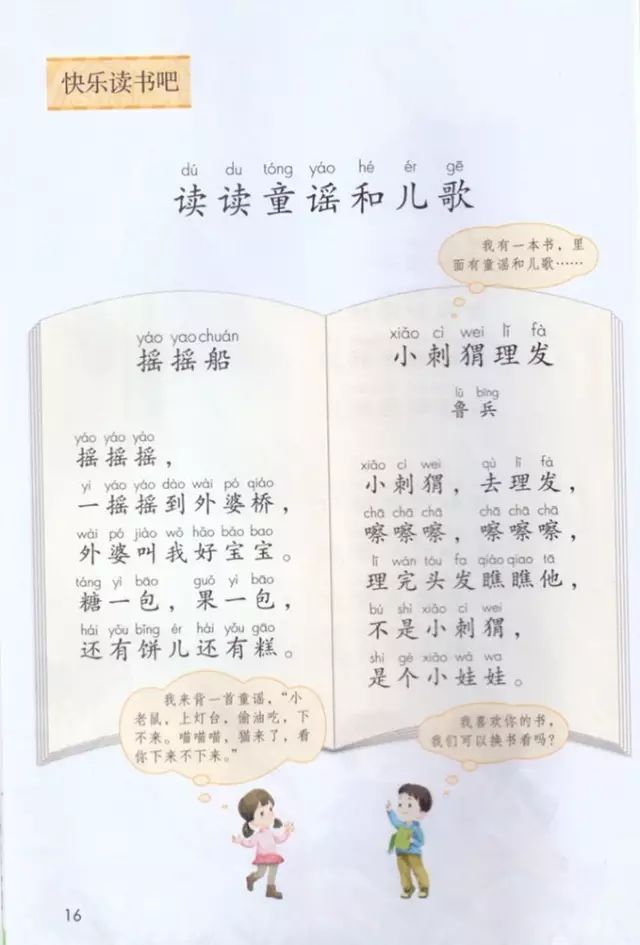 快乐读书吧
dú du tóng yáo hé ér gē
读读童谣和儿歌
我有一本书，里
面有童谣和儿歌……
yáo yao chuán
摇摇船
yáo yáo yáo
摇摇摇，
yì yáo yáo dào wài pó qiáo
一摇摇到外婆桥，
wài pó jiào wǒ hǎo bǎo bao
外婆叫我好宝宝。
táng yì bāo guǒ yì bāo
糖一包，果一包，
hái yǒu bǐng ér hái yǒu gāo
还有饼儿还有糕。
xiǎo cì wei lǐ fà
小刺猬理发
lǔ bīng
鲁兵
xiǎo cì wei qù lǐ fà
小刺猬，去理发，
chā chā chā chā chā chā
嚓嚓嚓，嚓嚓嚓，
lǐ wán tóu fa qiáo qiao tā
理完头发瞧瞧他，
bú shì xiǎo cì wei
不是小刺猬，
shì gè xiǎo wá wa
是个小娃娃。
我来背一首童谣，“小
老鼠，上灯台，偷油吃，下
不来。喵喵喵，猫来了，看
你下来不下来。”
我喜欢你的书，
我们可以换书看吗？
16